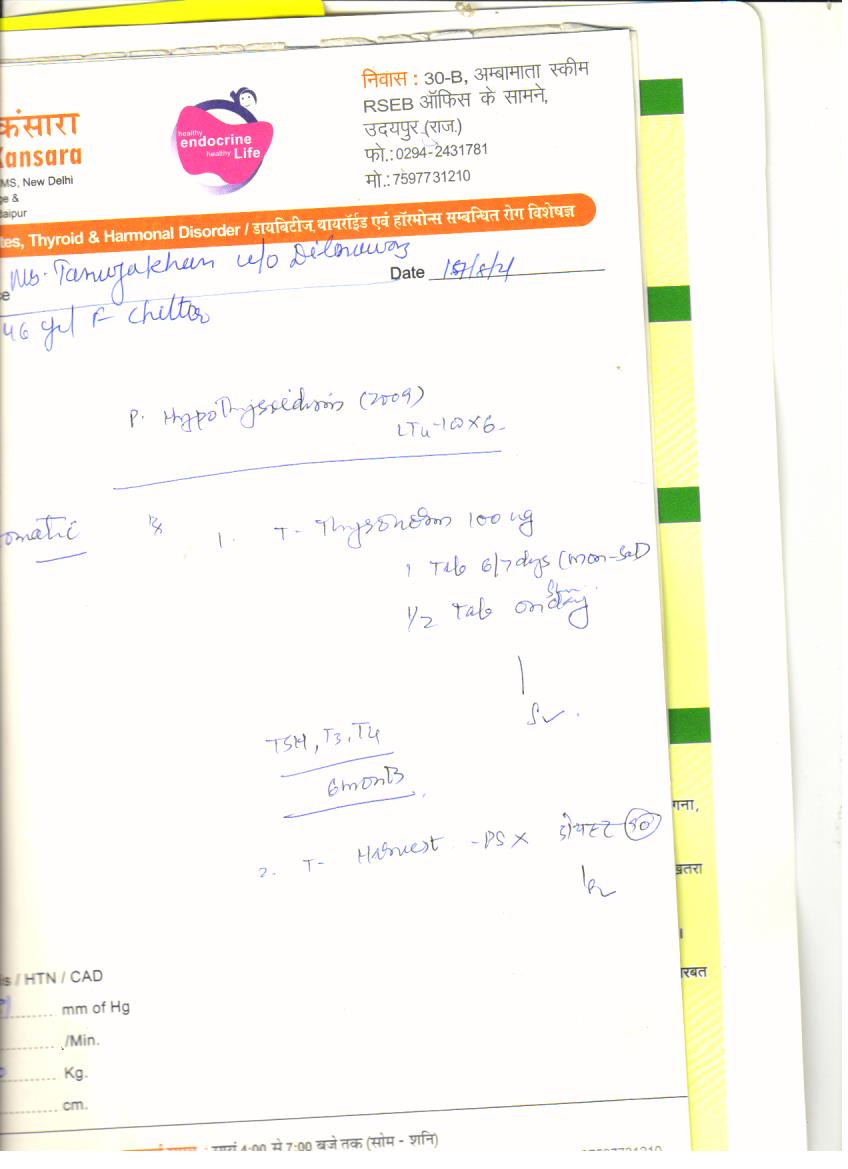 कंसारा
Kansara
MS, New Delhi
ge &
daipur
healthy
endocrine
healthy Life
निवास : 30-B, अम्बामाता स्कीम
RSEB ऑफिस के सामने,
उदयपुर (राज.)
फो.:0294-2431781
मो.:7597731210
tes, Thyroid & Harmonal Disorder / डायबिटीज, थायरॉईड एवं हॉरमोन्स सम्बन्धित रोग विशेषज्ञ
Ms. Tanujakhan w/o Dilnawaz
Date
ce
46 yrl F Chittor
P. Hypothyroidism (2009)
LT4-100x6-
omatic
Rx
1. T- Thyronorm 100 ug
1 Tab 6/7 dys (Mon-Sat)
1/2 Tab on Sun day
TSH, T3, T4
6 month
2. T- -DS x
is / HTN / CAD
mm of Hg
/Min.
Kg.
cm.
गना,
खतरा
रबत
: सायं 4:00 से 7:00 बजे तक (सोम - शनि)